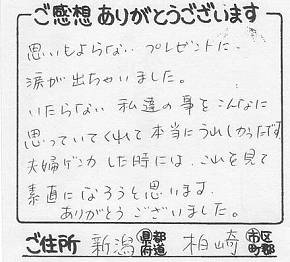 ご感想 ありがとうございます
思いもよらない プレゼントに、
涙が出ちゃいました。
いたらない 私達の事を こんなに
思っていてくれて 本当に うれしかったです
夫婦ゲンカ した時には、これを見て
素直に なろうと思います。
ありがとう ございました。
ご住所 新潟 都道府県 柏崎 市区町郡